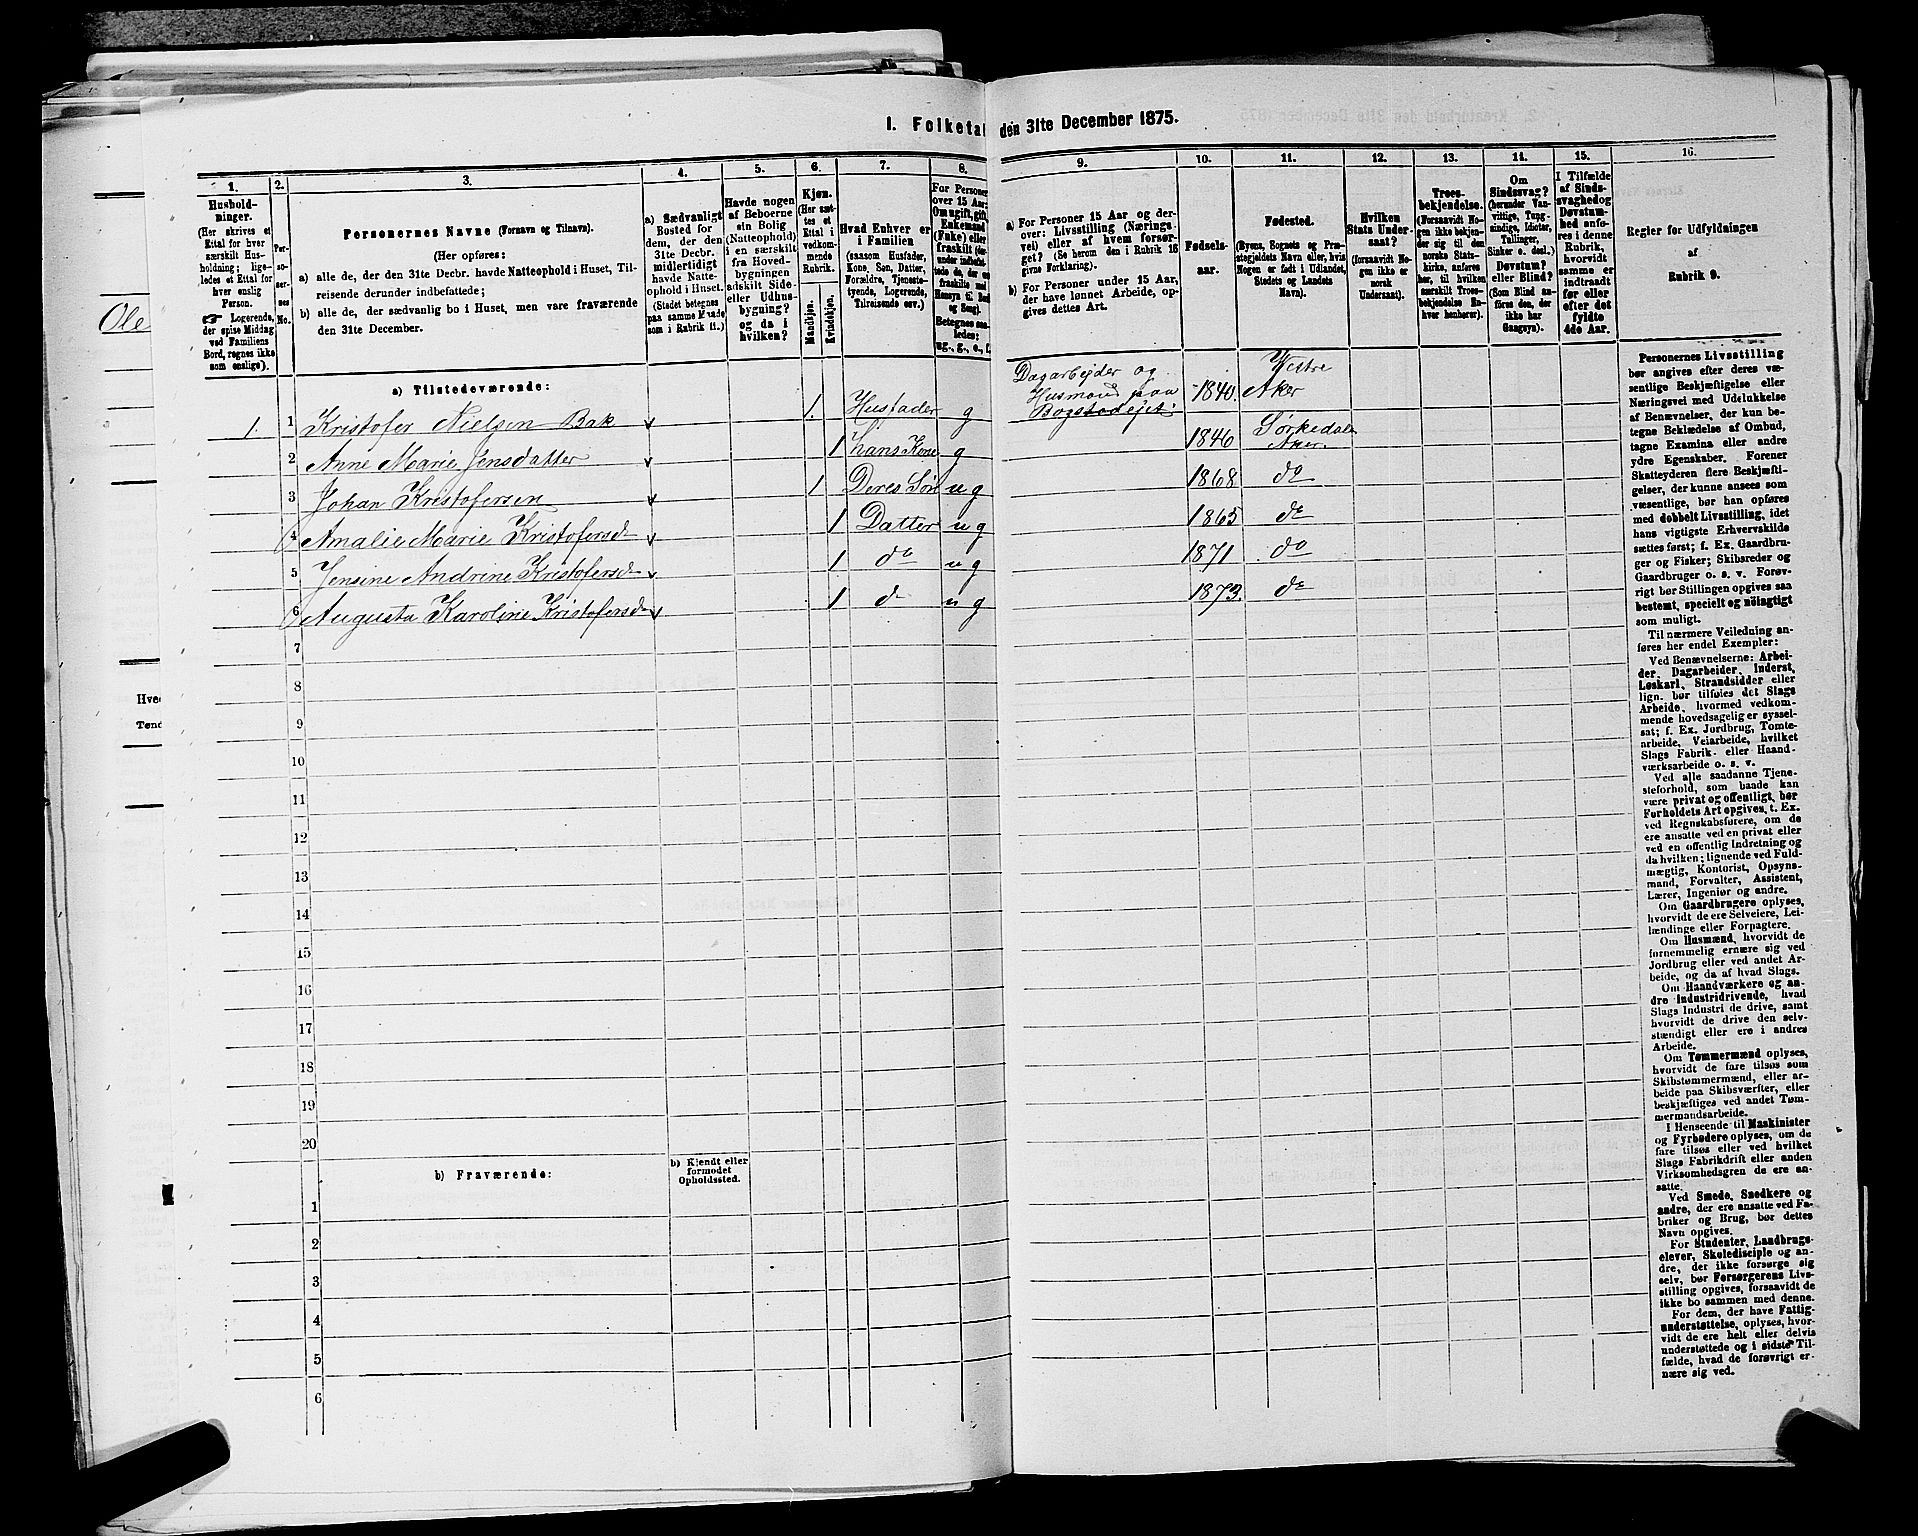 I. Folketal den 31te December 1875.
1.
2.
3.
4.
5.
6.
7.
8.
9.
10.
11.
12.
13.
14.
15.
16.
Hushold-
ninger.
(Her skrives et
Ettal for hver
særskilt Hus-
holdning; lige-
ledes et Ettal for
hver enslig
Person.
Logerende,
der spise Middag
ved Familiens
Bord, regnes ikke
som enslige).
Per-
so-
ner-
nes
No.
Personernes Navne (Fornavn og Tilnavn).
(Her opføres:
a) alle de, der den 31te Decbr. havde Natteophold i Huset, Til-
reisende derunder indbefattede;
b) alle de, der sædvanlig bo i Huset, men vare fraværende
den 31te December.
a) Sædvanligt
Bosted for
dem, der den
31te Decbr.
midlertidigt
havde Natte-
ophold i Huset.
(Stedet betegnes
paa samme Maade
som i Rubrik 11.)
Havde nogen
af Beboerne
sin Bolig
(Natteophold)
i en særskilt
fra Hoved-
bygningen
adskilt Side-
eller Udhus-
bygning?
og da i
hvilken?
Kjøn.
(Her sæt-
tes et
Ettal i
vedkom-
mende
Rubrik.
Mandkjøn.
Kvindekjøn.
Hvad Enhver er
i Familien
(saasom Husfader,
Kone, Søn, Datter,
Forældre, Tjeneste-
tyende, Logerende,
Tilreisende osv.)
For Personer
over 15 Aar:
Om ugift, gift,
Enkemand
(Enke) eller
fraskilt
Betegnes saa-
ledes:
ug., g., e., f.
a) For Personer 15 Aar og der-
over: Livsstilling (Nærings-
vei) eller af hvem forsør-
get? (Se herom den i Rubrik 16
givne Forklaring).
b) For Personer under 15 Aar,
der have lønnet Arbeide, op-
gives dettes Art.
Fødsels-
aar.
Fødested.
(Byens, Sognets og Præ-
stegjeldets Navn, eller hvis
Nogen er født i Udlandet,
Stedets og Landets
Navn).
Hvilken
Stats Under-
saat?
(forsaavidt No-
gen ikke er
norsk
Undersaat).
Troes-
bekjendelse.
(Forsaavidt No-
gen ikke bekjen-
der sig til den
norske Stats-
kirke, anføres
her, til hvilken
særskilt Troes-
bekjendelse En-
hver henhører).
Om
Sindssvag?
(herunder Van-
vittige, Tung-
sindige, Idioter,
Tullinger,
Sinker o. desl.).
Døvstum?
eller Blind?
(Som Blind an-
føres den, der
ikke har
Gangsyn).
I Tilfælde
af Sinds-
svaghed og
Døvstum-
hed anfø-
res i denne
Rubrik,
hvorvidt
samme er
indtraadt
før eller
efter det
fyldte
4de Aar.
Regler for Udfyldningen
af
Rubrik 9.
a) Tilstedeværende:
1. 1 Kristofer Nielsen Bak v 1. Husfader g Dagarbejder og Husmand paa Bogstadejet; 1840. Vestre Aker
2 Anne Marie Jensdatter v 1 hans Kone g 1846 Sørkedalen Aker.
3 Johan Kristofersen v 1 Deres Søn ug 1868 do
4 Amalie Marie Kristofersd v 1 Datter ug 1865 do
5 Jensine Andrine Kristofersd v 1 do ug 1871 do
6 Augusta Karoline Kristofersd v 1 do ug 1873. do
7
8
9
10
11
12
13
14
15
16
17
18
19
20
b) Fraværende:
b) Kjendt eller
formodet
Opholdssted.
1
2
3
4
5
6
Personernes Livsstilling
bør angives efter deres væ-
sentlige Beskjæftigelse eller
Næringsvei med Udelukkelse
af Benævnelser, der kun be-
tegne Beklædelse af Ombud,
tagne Examina eller andre
ydre Egenskaber. Forener
Skatteyderen flere Beskjæfti-
gelser, der kunne ansees som
væsentlige, bør han opføres
med dobbelt Livsstilling, idet
hans vigtigste Erhvervskilde
sættes først; f. Ex. Gaardbru-
ger og Fisker; Skibsreder og
Gaardbruger o. s. v. Forøv-
rigt bør Stillingen opgives saa
bestemt, specielt og nöiagtigt
som muligt.
Til nærmere Veiledning an-
føres her endel Exempler:
Ved Benævnelserne: Arbei-
der, Dagarbeider, Inderst,
Løskarl, Strandsidder eller
lign. bør tilføies det Slags
Arbeide, hvormed vedkom-
mende hovedsagelig er syssel-
sat; f. Ex. Jordbrug, Tomte-
arbeide, Veiarbeide, hvilket
Slags Fabrik- eller Haand-
værksarbeide o. s. v.
Ved alle saadanne Tjene-
steforhold, som baade kan
være privat og offentligt, bør
Forholdets Art opgives, t. Ex.
ved Regnskabsførere, om de
ere ansatte ved en privat eller
ved en offentlig Indretning og
da hvilken; lignende ved Fuld-
mægtig, Kontorist, Opsyns-
mand, Forvalter, Assistent,
Lærer, Ingeniør og andre.
Om Gaardbrugere oplyses,
hvorvidt de ere Selveiere, Lei-
lændinge eller Forpagtere.
Om Husmænd, hvorvidt de
fornemmelig ernære sig ved
Jordbrug eller ved andet Ar-
beide, og da af hvad Slags.
Om Haandværkere og an-
dre Industridrivende, hvad
Slags Industri de drive, samt
hvorvidt de drive den selv-
stændigt eller ere i andres
Arbeide.
Om Tømmermænd oplyses,
hvorvidt de fare tilsøs som
Skibstømmermænd, eller ar-
beide paa Skibsværfter, eller
beskjæftiges ved andet Tøm-
mermandsarbeide.
I Henseende til Maskinister
og Fyrbødere oplyses, om de
fare tilsøs eller ved hvilket
Slags Fabrikdrift eller anden
Virksomhedsgren de ere an-
satte.
Ved Smede, Snedkere og
andre, der ere ansatte ved Fa-
briker og Brug, bør dettes
Navn opgives.
For Studenter, Landbrugs-
elever, Skoledisciple og an-
dre, der ikke forsørge sig
selv, bør Forsørgerens Livs-
stilling opgives, forsaavidt de
ikke bo sammen med denne.
For dem, der have Fattig-
understøttelse, oplyses, hvor-
vidt de ere helt eller delvis
understøttede og i sidste Til-
fælde, hvad de forøvrigt er-
nære sig ved.
Ole
Hve
Tønd